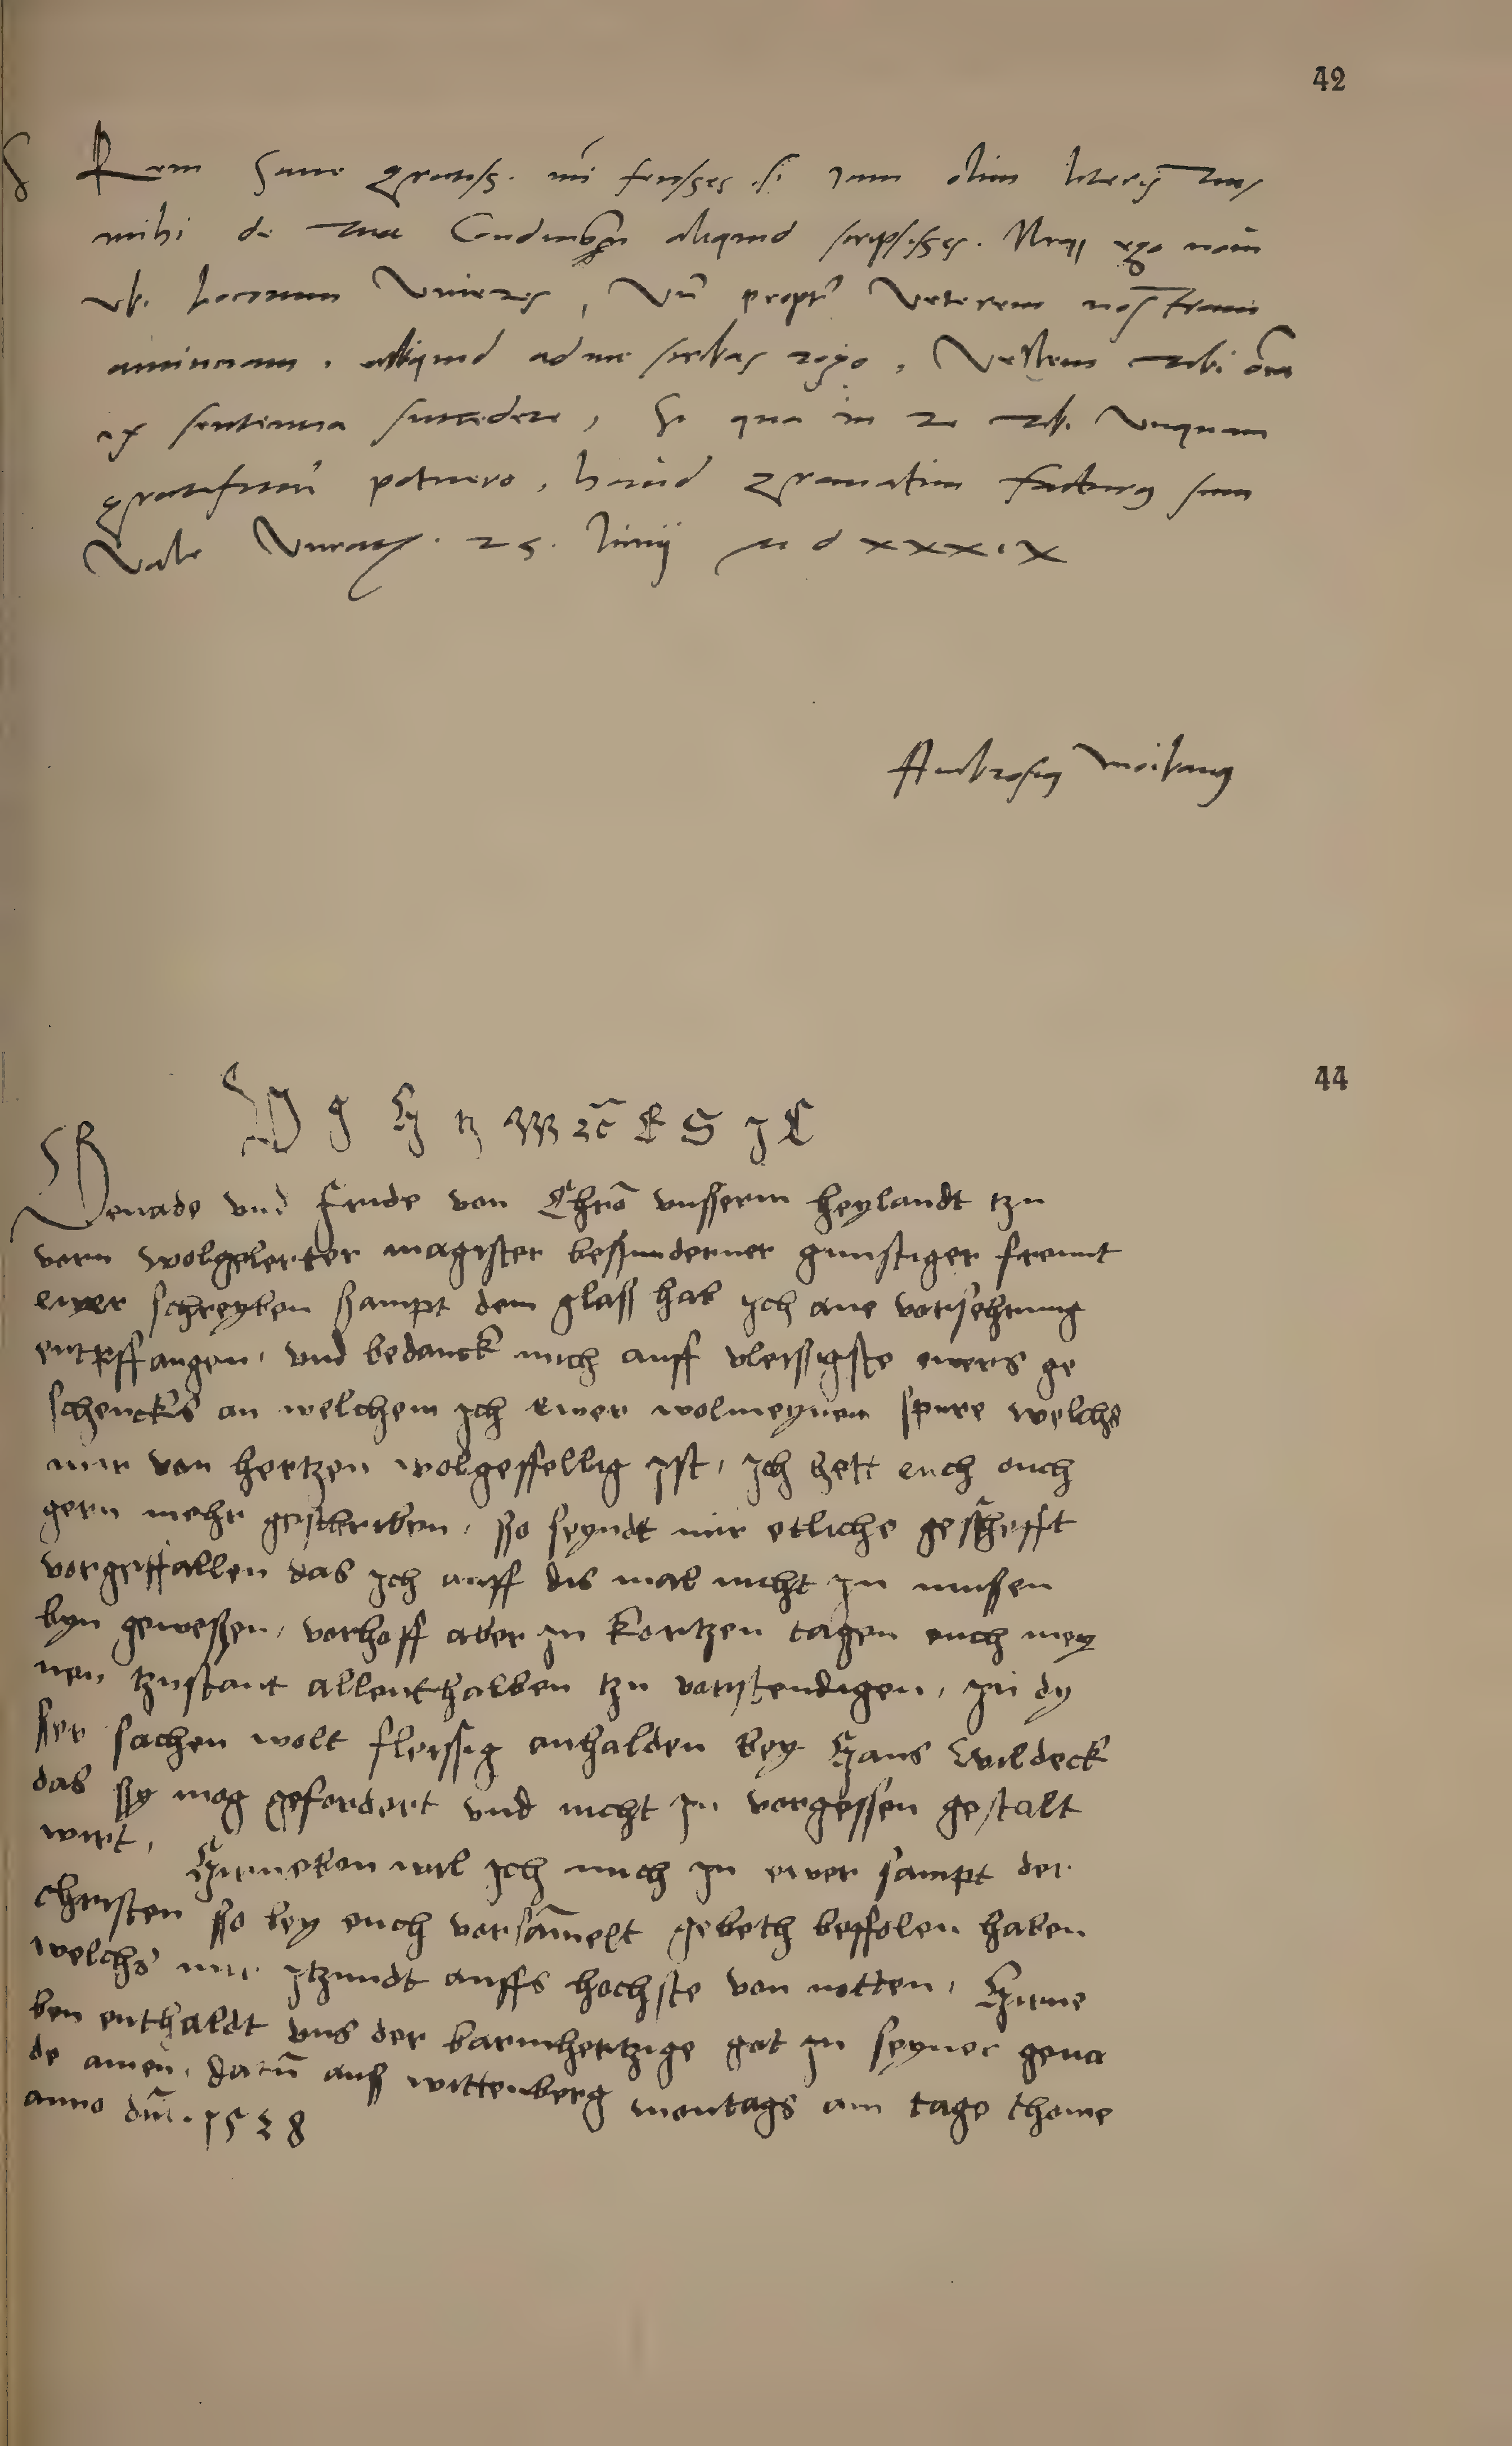 42
S Rem sane gratiss. mi fecisses si iam olim literis tuis
mihi de tua Condition aliquid scripsisses. Neque ego novi
ubi locorum viveres, Un propter veterem nostram
amicitiam, aliquid ad me scribas rogo, Vellem tibi oia
ex sententia succedere, Si qua in re tibi unquam
gratificari potuero, haud gravatim facturus sum
Vale 25. Junij M D XXXIX
Ambrosius Moibanus
44
Genade vnd fride von Chro vnsserm heylandt tzu
vorn wolgelerter magister bessunderner gunstiger freunt
ewer schreyben sampt dem glass hab jch ane vorsehrung
entpffangen, vnd bedanck mich auff vleissigste ewers ge
schencks an welchem jch ewer wolmeynen spure welchs
mir von hertzen wolgeffellig jst, jch hett euch ouch
gern mehr geschreiben, sso seyndt mir etliche geschefft
vorgeffallen das jch auff dis mal nicht jn mussen
byn gewessen, vorhoff aber jn kortzen tagen euch mey
nen tzustant allenthalben tzu vorstendigen, jn dy
sser sachen wolt fleissig anhalden bey Hans Wildeck
das ssy mog gefordert vnd nicht jn vorgessen gestalt
wirt, Hirneben wil jch mich jn ewer sampt der
christen sso bey euch vorsamelt gebeth beffolen haben
welchs mir jtzundt auffs hochste von notten, Hirne
ben enthaldt vns der barmhertzige got jn seyner gena
de amen, datu auss wittenberg montags am tage thome
anno dni. 1528